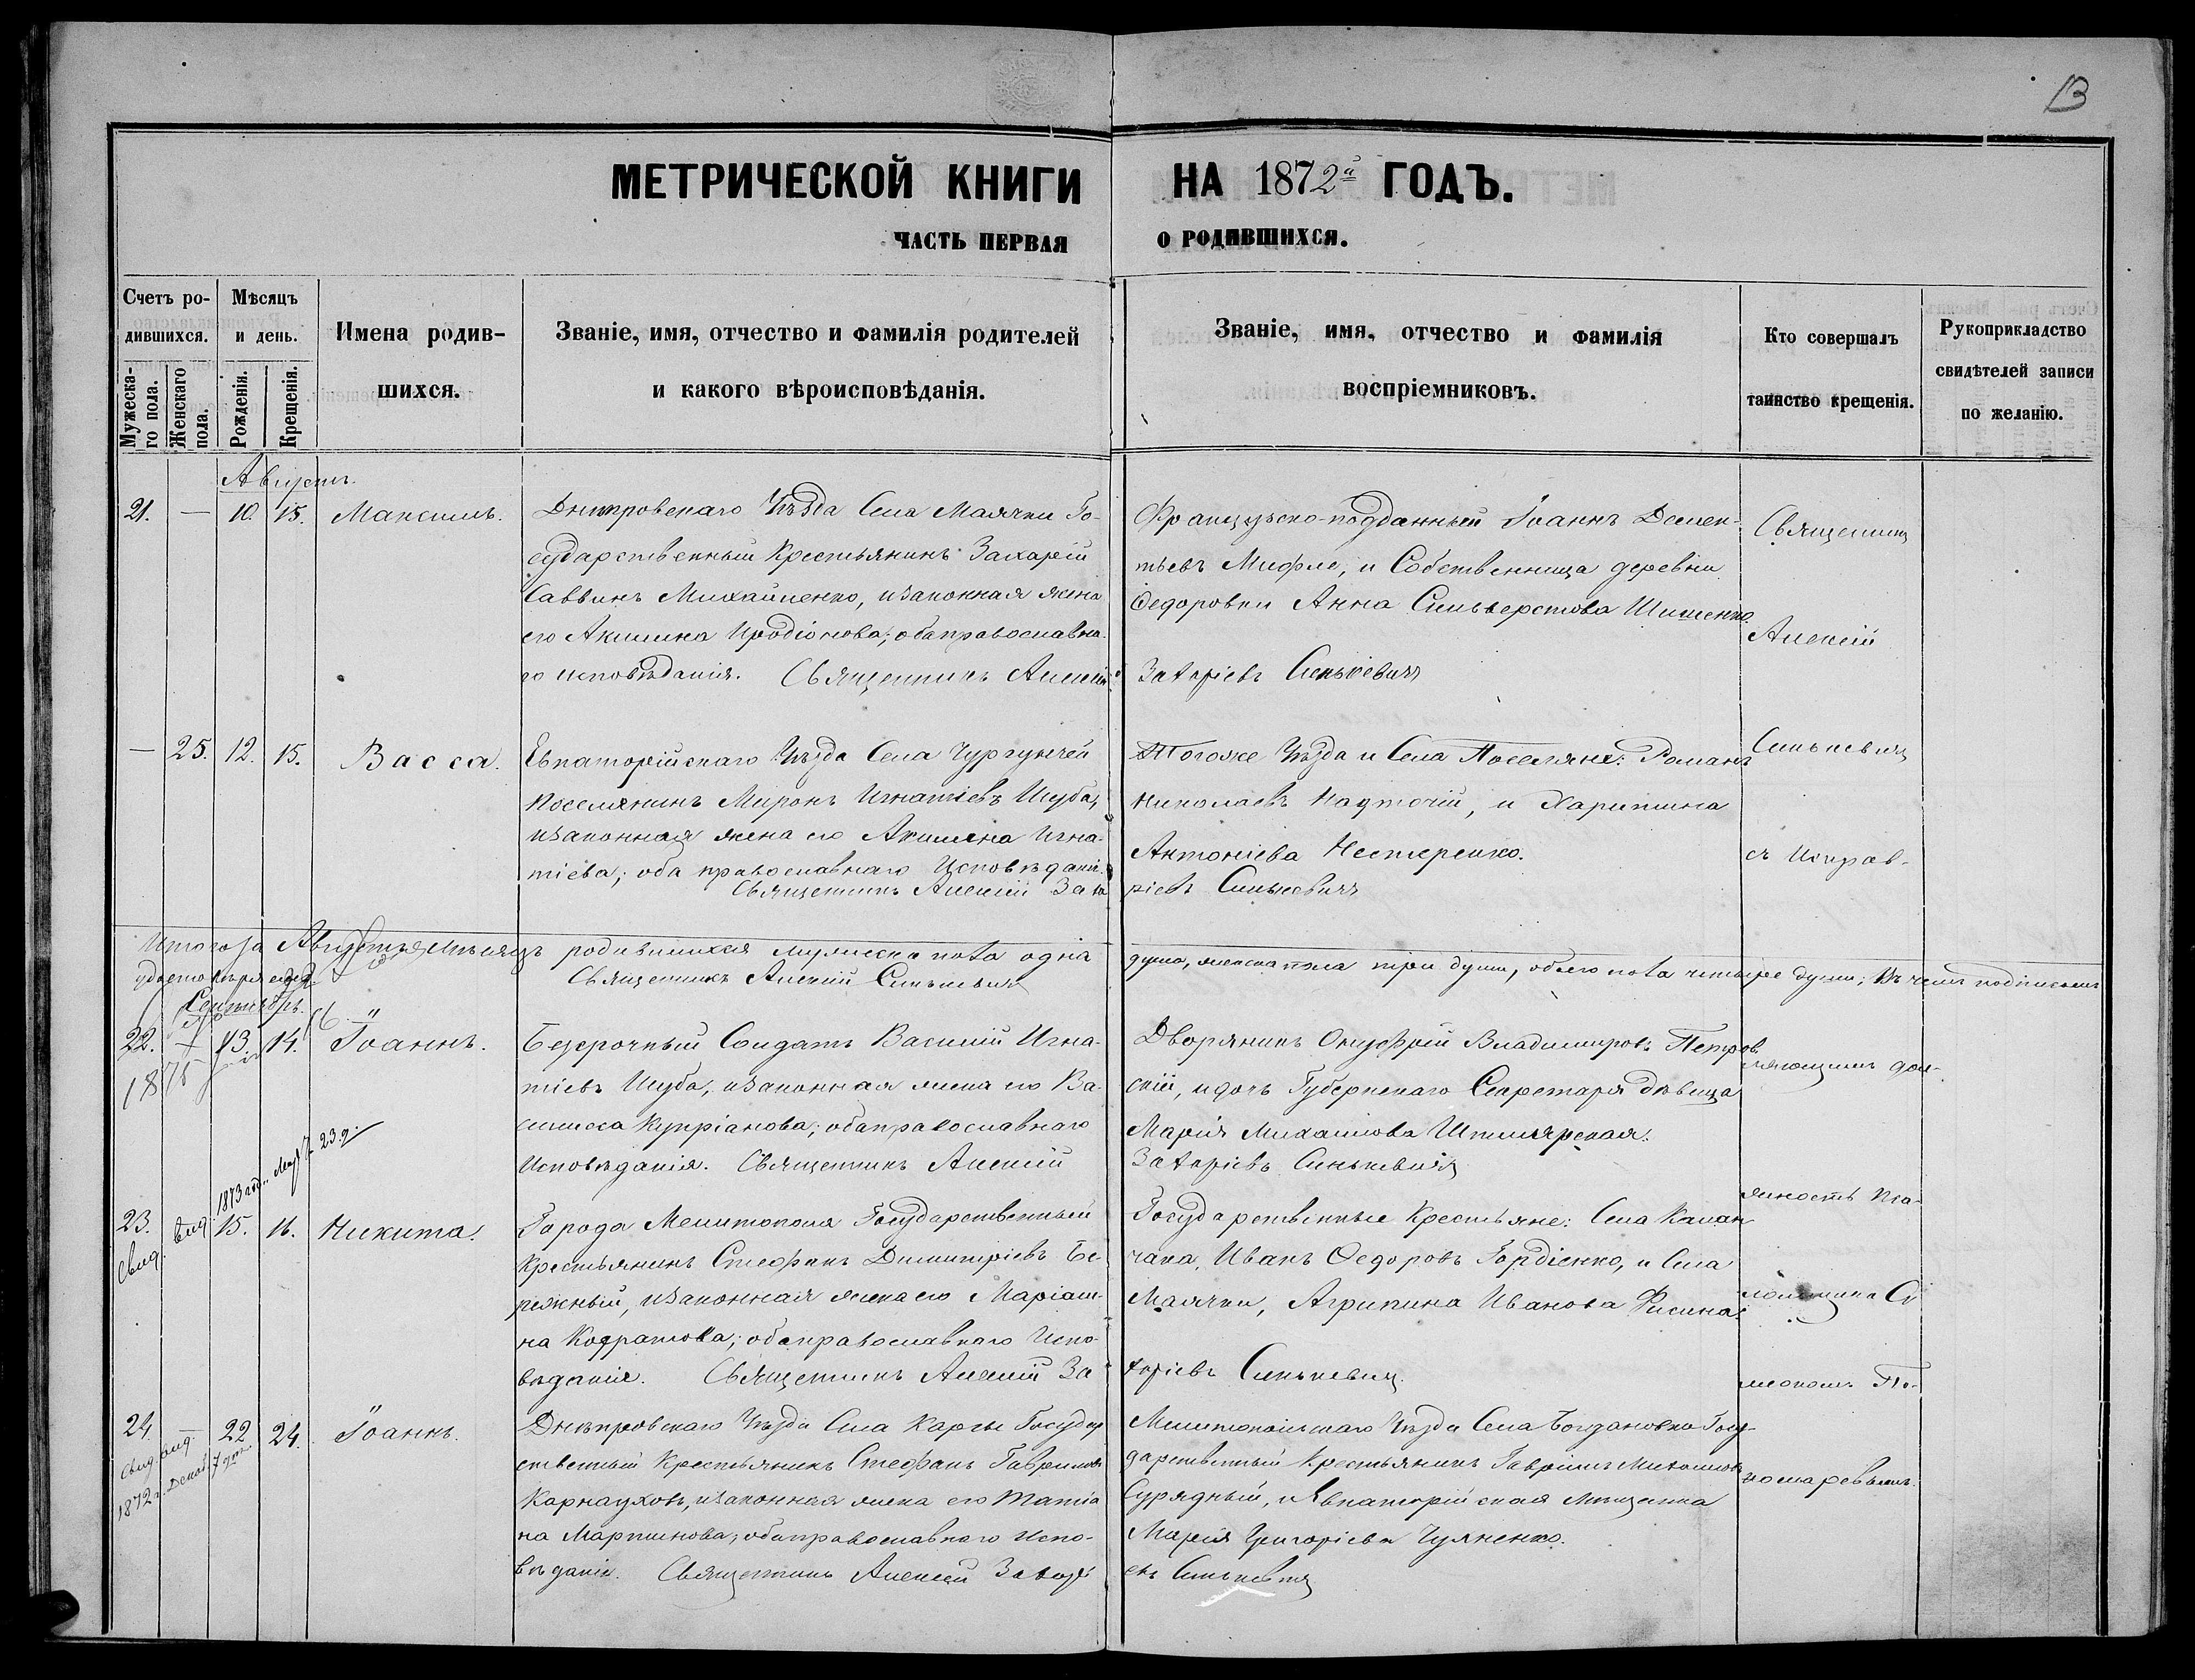 13
МЕТРИЧЕСКОЙ КНИГИ НА 1872й ГОДЪ.
ЧАСТЬ ПЕРВАЯ О РОДИВШИХСЯ.
Счетъ ро-
дившихся.
Мужеска-
го пола.
Женскаго
пола.
Мѣсяцъ
и день.
Рожденія.
Крещенія.
Имена родив-
шихся.
Званіе, имя, отчество и фамилія родителей
и какого вѣроисповѣданія.
Званіе, имя, отчество и фамилія
воспріемниковъ.
Кто совершалъ
таинство крещенія.
Рукоприкладство
свидѣтелей записи
по желанію.
Августъ.
21. — 10. 15. Максимъ.
Днепровскаго Уѣзда Села Маячки Го-
сударственный Крестьянинъ Захарій
Саввинъ Михайленко, изаконная жена
его Акилина Иродіонова; обаправославна-
го исповѣданія. Священникъ Алексій
Французско-подданный Іоаннъ
тьевъ и Собственница деревни
Федоровки Анна Сильверстова Шишенко.
Захаріевъ Синькевичъ
Священникъ
Алексій
Синькевичъ
съ исправ-
ляющимъ дол-
жность пса-
ломщика Си
меономъ По-
номаревымъ.
— 25. 12. 15. Васса.
Евпаторійскаго Уѣзда Села Чургунчей
Поселянинъ Миронъ Игнатіевъ Шуба,
изаконная жена его Акилина Игна-
тіева; оба православнаго Исповѣданія.
Священникъ Алексій Заха
Тогоже Уѣзда и Села Поселяне: Романъ
Николаевъ Надточій, и Харитина
Антоніева Нестеренко.
ріевъ Синькевичъ
Итого за Августъ Мѣсяцъ родившихся мужеска пола одна
душа, женска пола три души, обоего пола четыре души; Въ чемъ подписомъ
удостовѣряемъ Священникъ Алексій Синькевичъ
Сентябрь.
22. — 13. 14. Іоаннъ.
Безсрочный Солдатъ Василій Игна-
тіевъ Шуба, изаконная жена его Ва-
силиса Купріанова; обаправославнаго
Исповѣданія. Священникъ Алексій
Дворянинъ Онуфрій Владиміровъ Петров-
скій, идочь Губернскаго Секретаря дѣвица
Марія Михайлова
Захаріевъ Синькевичъ
1873 год. 23 д.
23. 15. 16. Никита.
Свид. выд.
Города Мелитополя Государственный
Крестьянинъ Стефанъ Димитріевъ Бе-
режный, изаконная жена его Маріам-
на Кодратова; обаправославнаго Испо-
вѣданія. Священникъ Алексій За
Государственные Крестьяне: Села Калан
чака, Иванъ Федоровъ Гордіенко, и Села
Маячки, Агрипина Иванова Фисина.
харіевъ Синькевичъ.
24. — 22 24. Іоаннъ.
Свид. выд.
1872 г. Декаб. 7 дня.
Днѣпровскаго Уѣзда Села Каргы Государ
ственный Крестьянинъ Стефанъ Гавриловъ
Карнауховъ, изаконная жена его Татіа
на Мартинова; обаправославнаго Испо-
вѣданія. Священникъ Алексей Захарі
Мелитопольскаго Уѣзда Села Богдановки Госу-
дарственный Крестьянинъ Гавріилъ
Сурядный, и Евпаторійская Мещанка
Марія Григоріева
евъ Синькевичъ